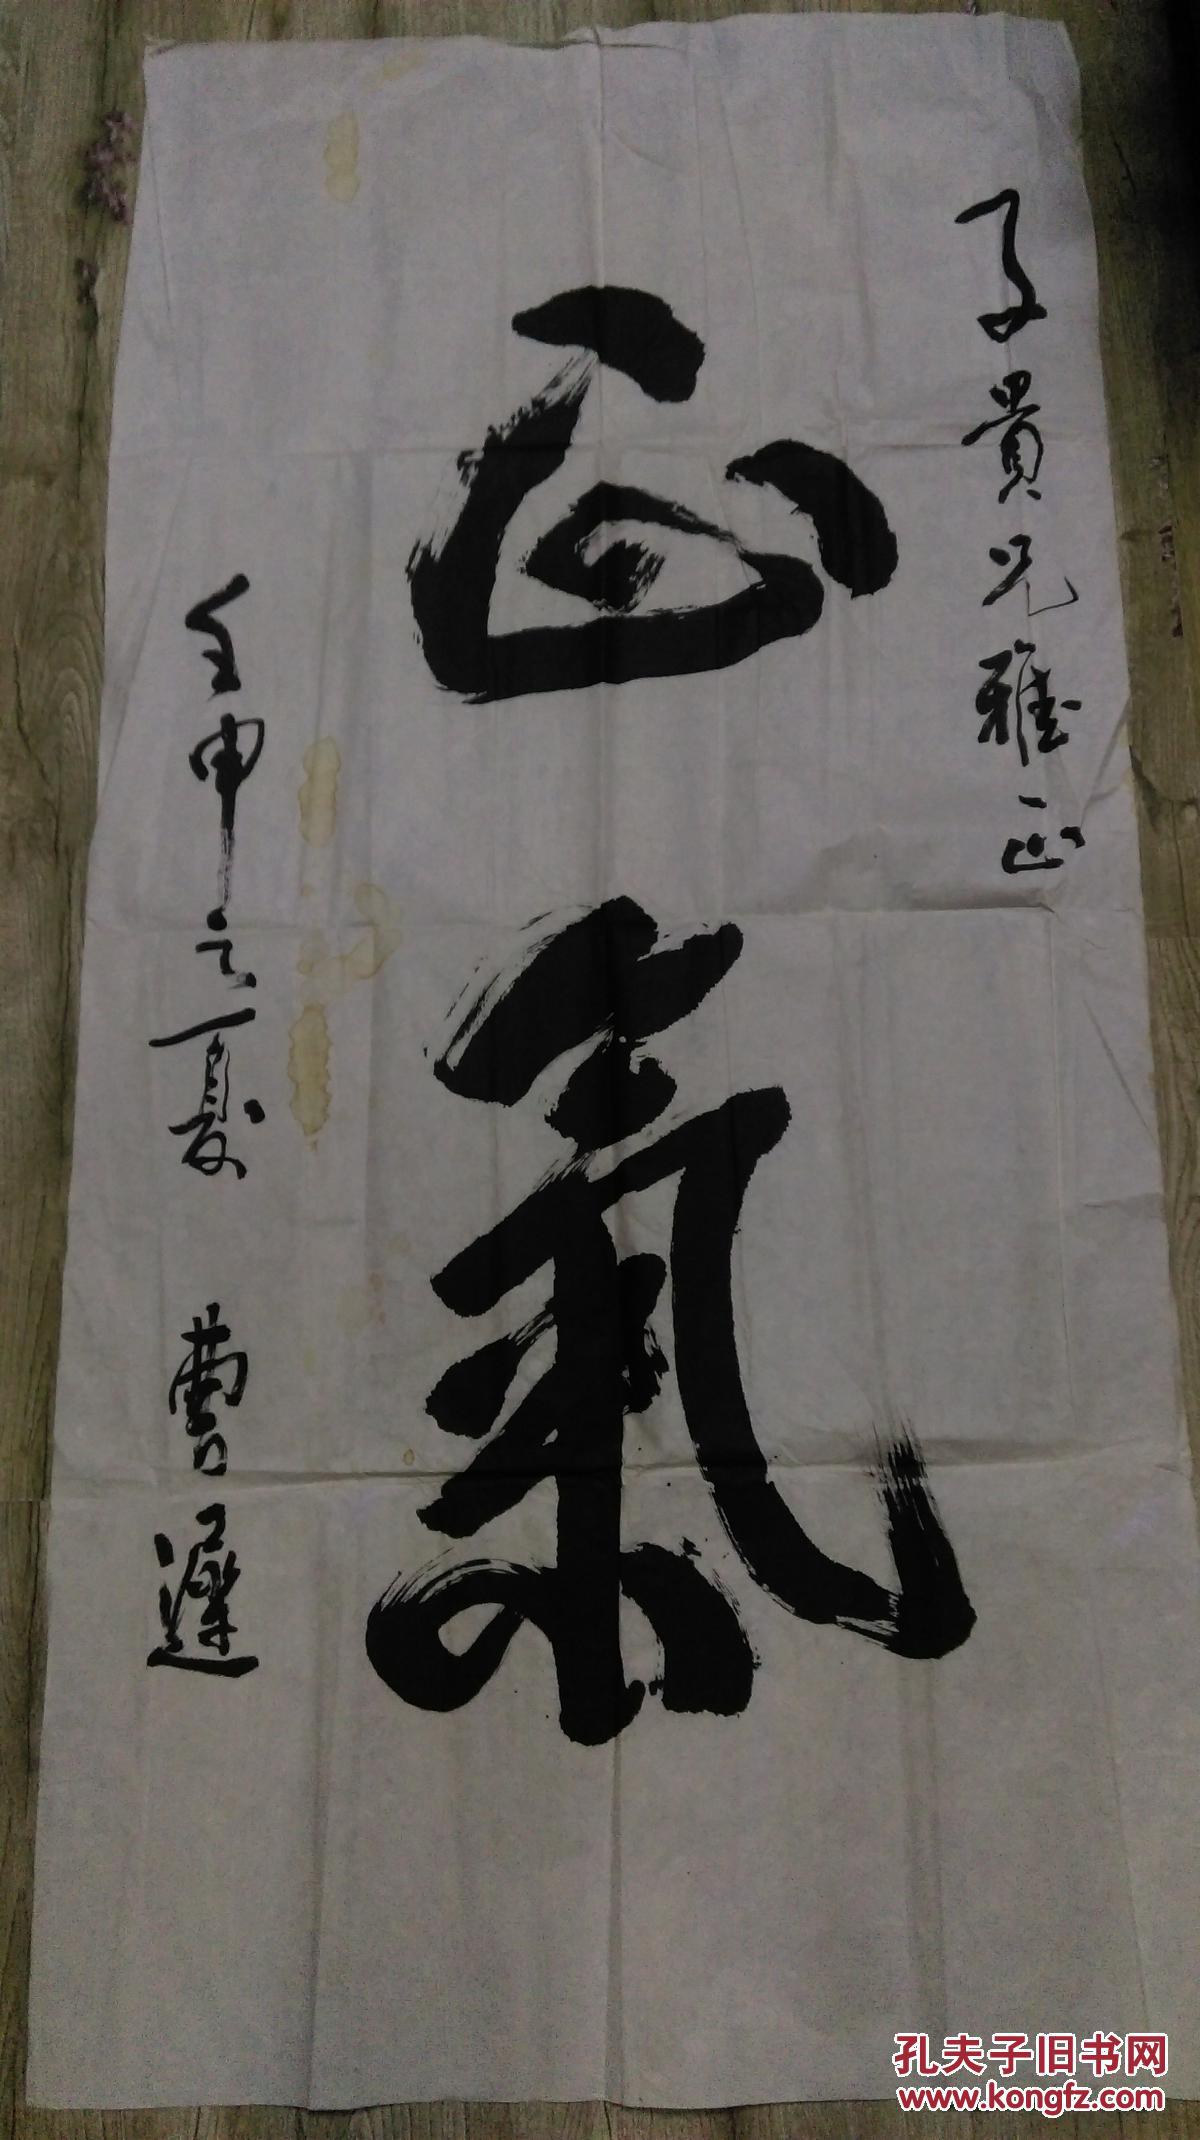 子貴兄雅正
正氣
壬申之夏 曹
孔夫子旧书网
www.kongfz.com